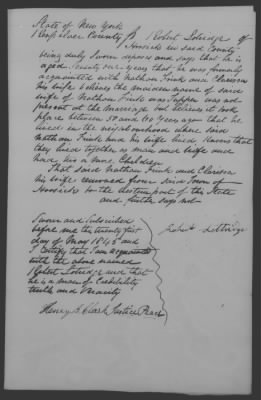 State of New York
Rensselaer County } Robert Lotridge of
Hoosick in said County
being duly Sworn deposes and says that he is
aged Seventy years that he was formerly
acquainted with Nathan Fink and Clarissa
his wife believes the maiden name of said
wife of Nathan Fink was Tupper was not
present at the marriage but believes it took
place between 50 and 60 years ago that he
lived in the neighbourhood where said
Nathan Fink and his wife lived knows that
they lived together as man and wife and
had Children
That said Nathan Fink and Clarissa
his wife removed from said Town of
Hoosick to the western part of this State
and further says not
Sworn and Subscribed
before me the twenty first
day of May 1845 and
I Certify that I am acquainted
with the above named
Robert Lotridge and that
he is a man of Credibility
truth and Veracity
Robert Lottridge
Henry B. Clark Justice Peace